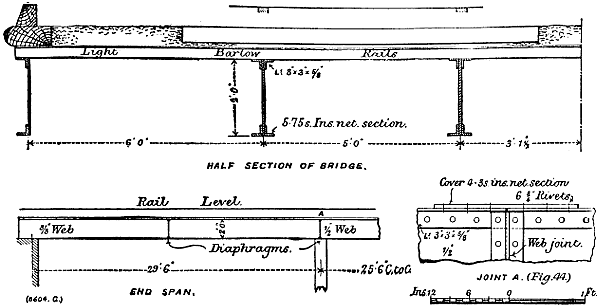 Light Barlow Rails
L! 3" × 3" × 5/8"
2'·0"
5·75s. Ins. net. section.
6'0" 5'0" 3'·1½"
HALF SECTION OF BRIDGE.
Rail Level.
A
3/8 Web 2'0" ½" Web
Diaphragms.
29'·6" 25'·6" C. to C.
(8604. G.)
END SPAN.
Cover 4·3s ins. net section
6 Rivets
L! 3" × 3" × 5/8"
½"
Web joint.
JOINT A. (Fig. 44.)
Ins. 12 6 0 1 Ft.